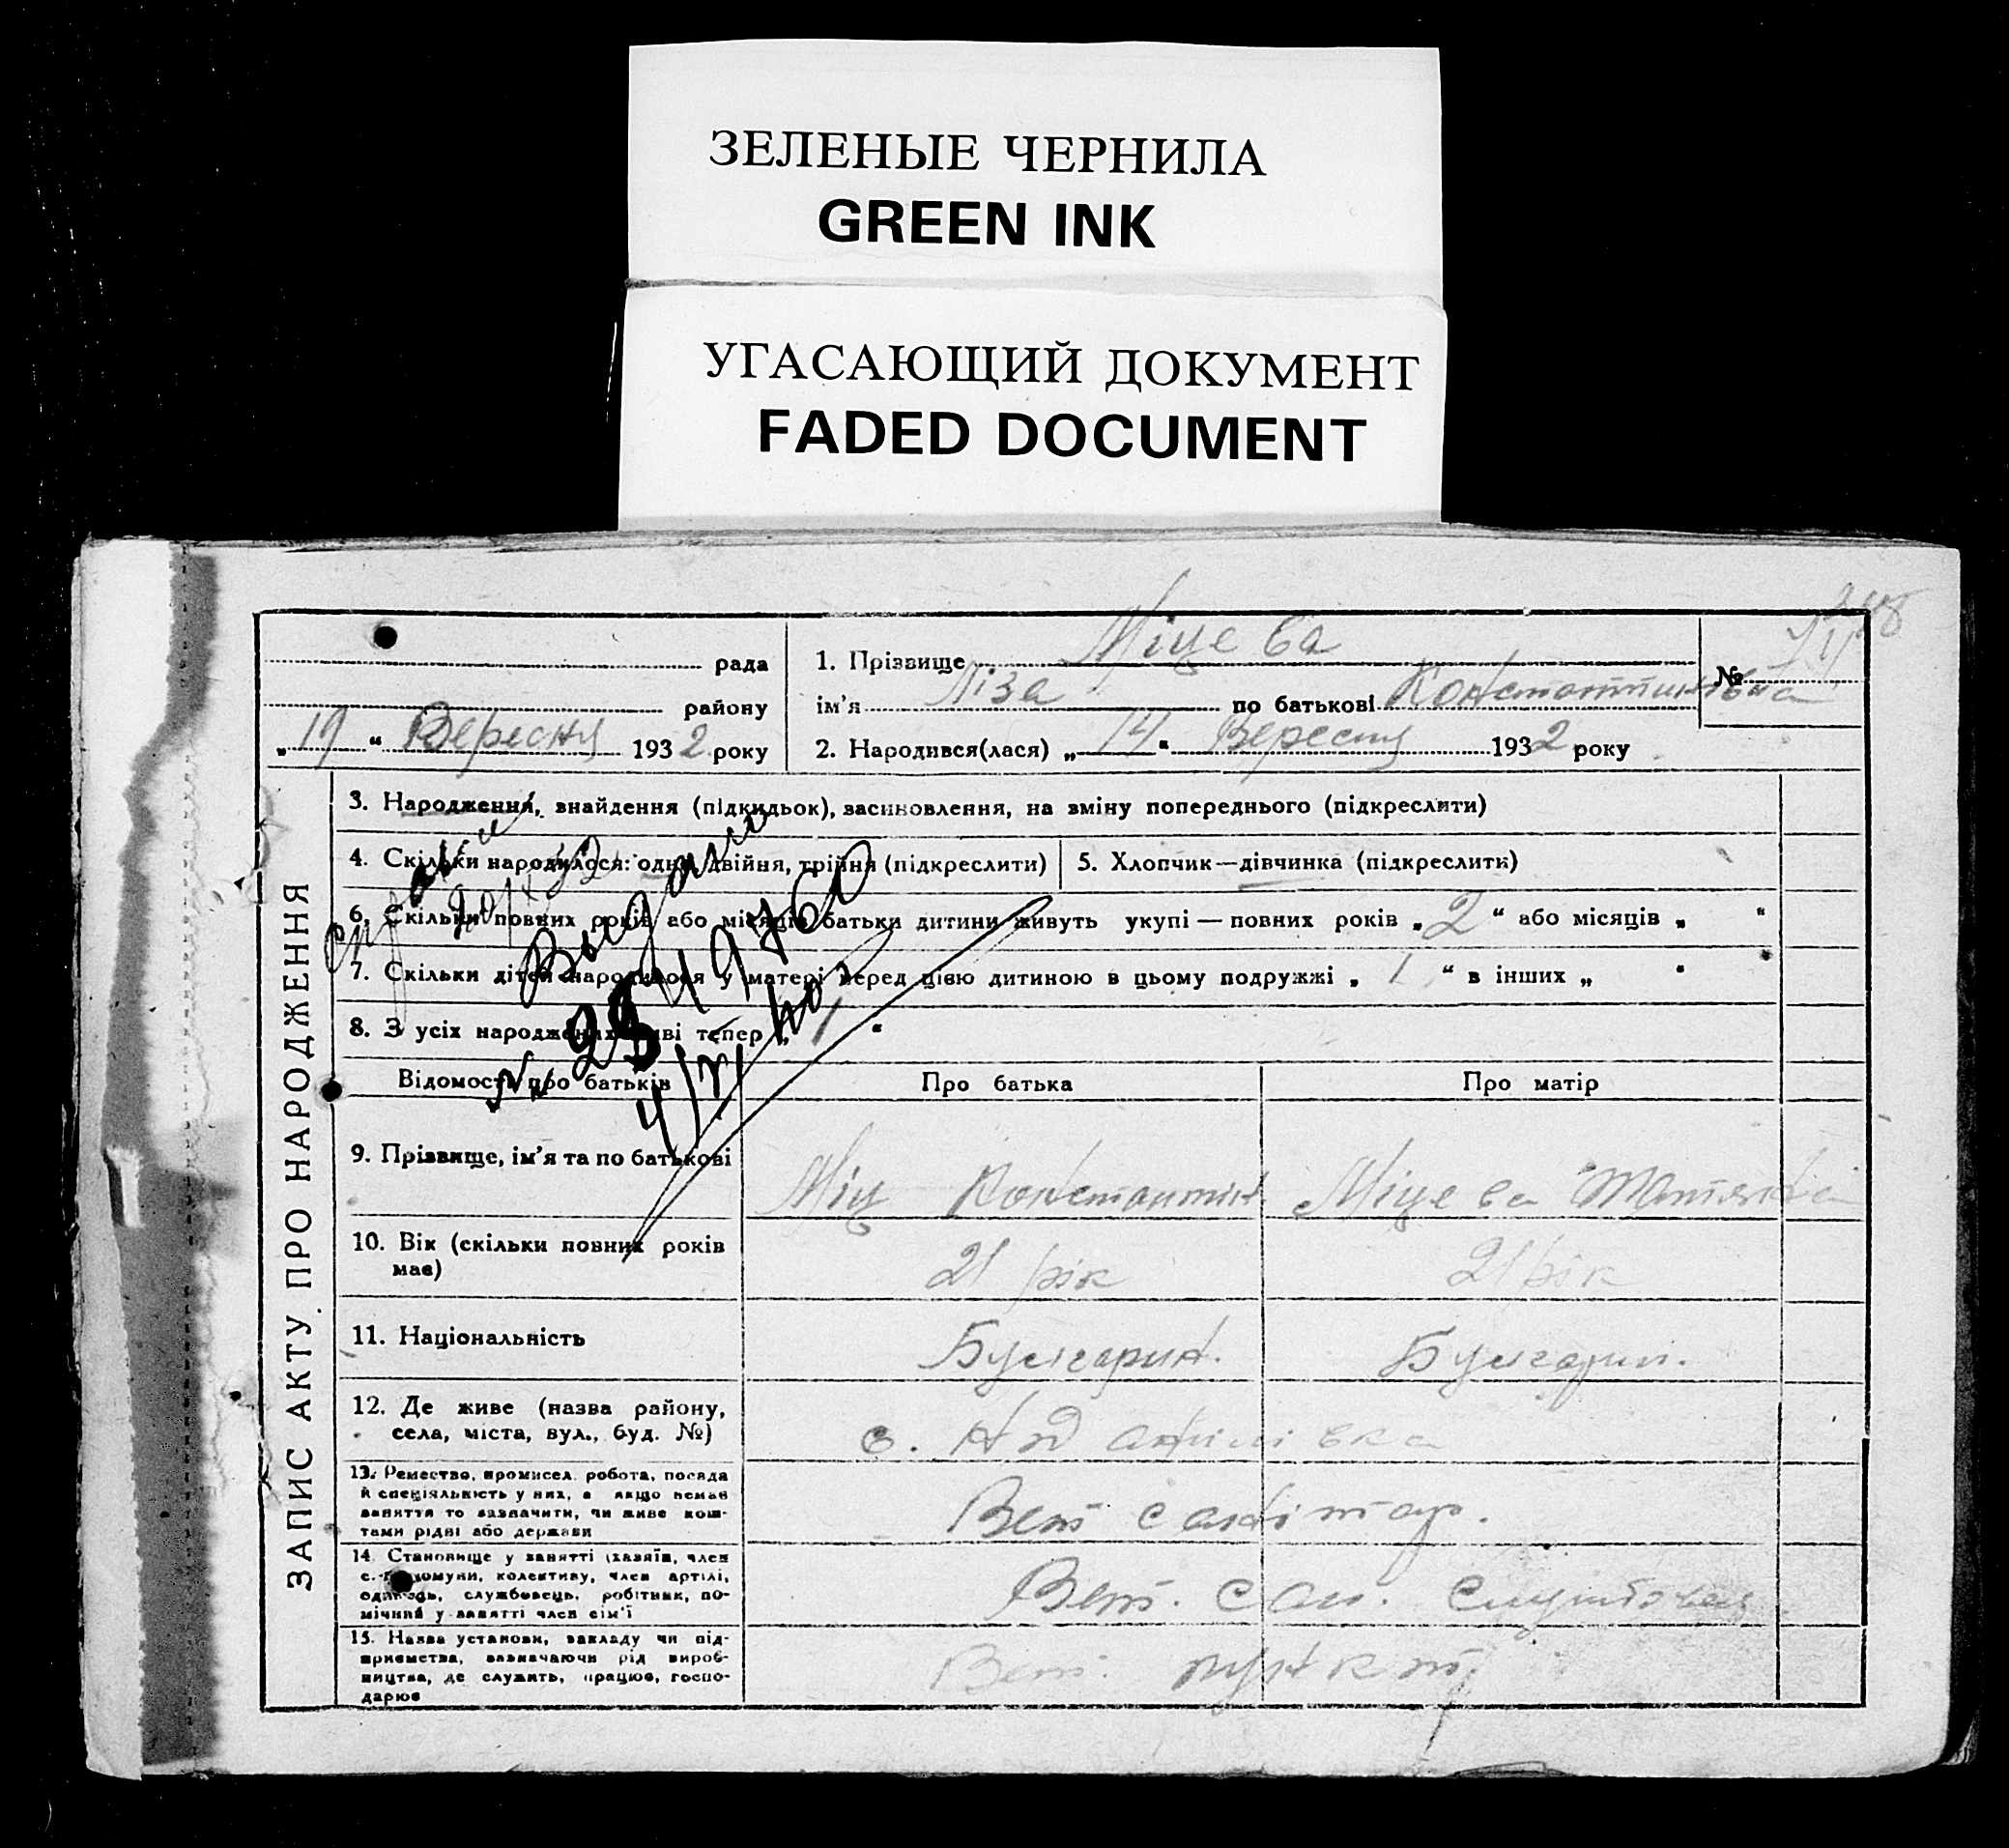 ЗЕЛЕНЫЕ ЧЕРНИЛА
GREEN INK
УГАСАЮЩИЙ ДОКУМЕНТ
FADED DOCUMENT
ЗАПИС АКТУ ПРО НАРОДЖЕННЯ
рада
району
„19“ Вересня 1932 року
1. Прізвище Міцева
ім'я Ліза по батькові Константинівна
№
2. Народився(лася) „14“ Вересня 1932 року
3. Народження, знайдення (підкидьок), засиновлення, на зміну попереднього (підкреслити)
4. Скільки народилося: одна, двійня, трійня (підкреслити)
5. Хлопчик—дівчинка (підкреслити)
6. Скільки повних років або місяців батьки дитини живуть укупі — повних років „2“ або місяців „ “
7. Скільки дітей народилося у матері перед цією дитиною в цьому подружжі „1“ в інших „ “
8. З усіх народжених живі тепер „1“
Выдано
Відомості про батьків
Про батька
Про матір
9. Прізвище, ім'я та по батькові
Міц Константин
Міцева
10. Вік (скільки повних років має)
21 рік
21 рік
11. Національність
Булгарин.
Булгарин.
12. Де живе (назва району,
села, міста, вул., буд. №)
с.
13. Ремество, промисел, робота, посада
й спеціяльність у них, а якщо немає
заняття то зазначити, чи живе кош-
тами рідні або держави
Вет санітар.
14. Становище у занятті (хазяїн, член
с.-г. комуни, колективу, член артілі,
одинець, службовець, робітник, по-
мічний у занятті член сім'ї
Вет. сан. службовец
15. Назва установи, закладу чи під-
приємства, зазначаючи рід вироб-
ництва, де служить, працює, госпо-
дарює
Вет. пункт